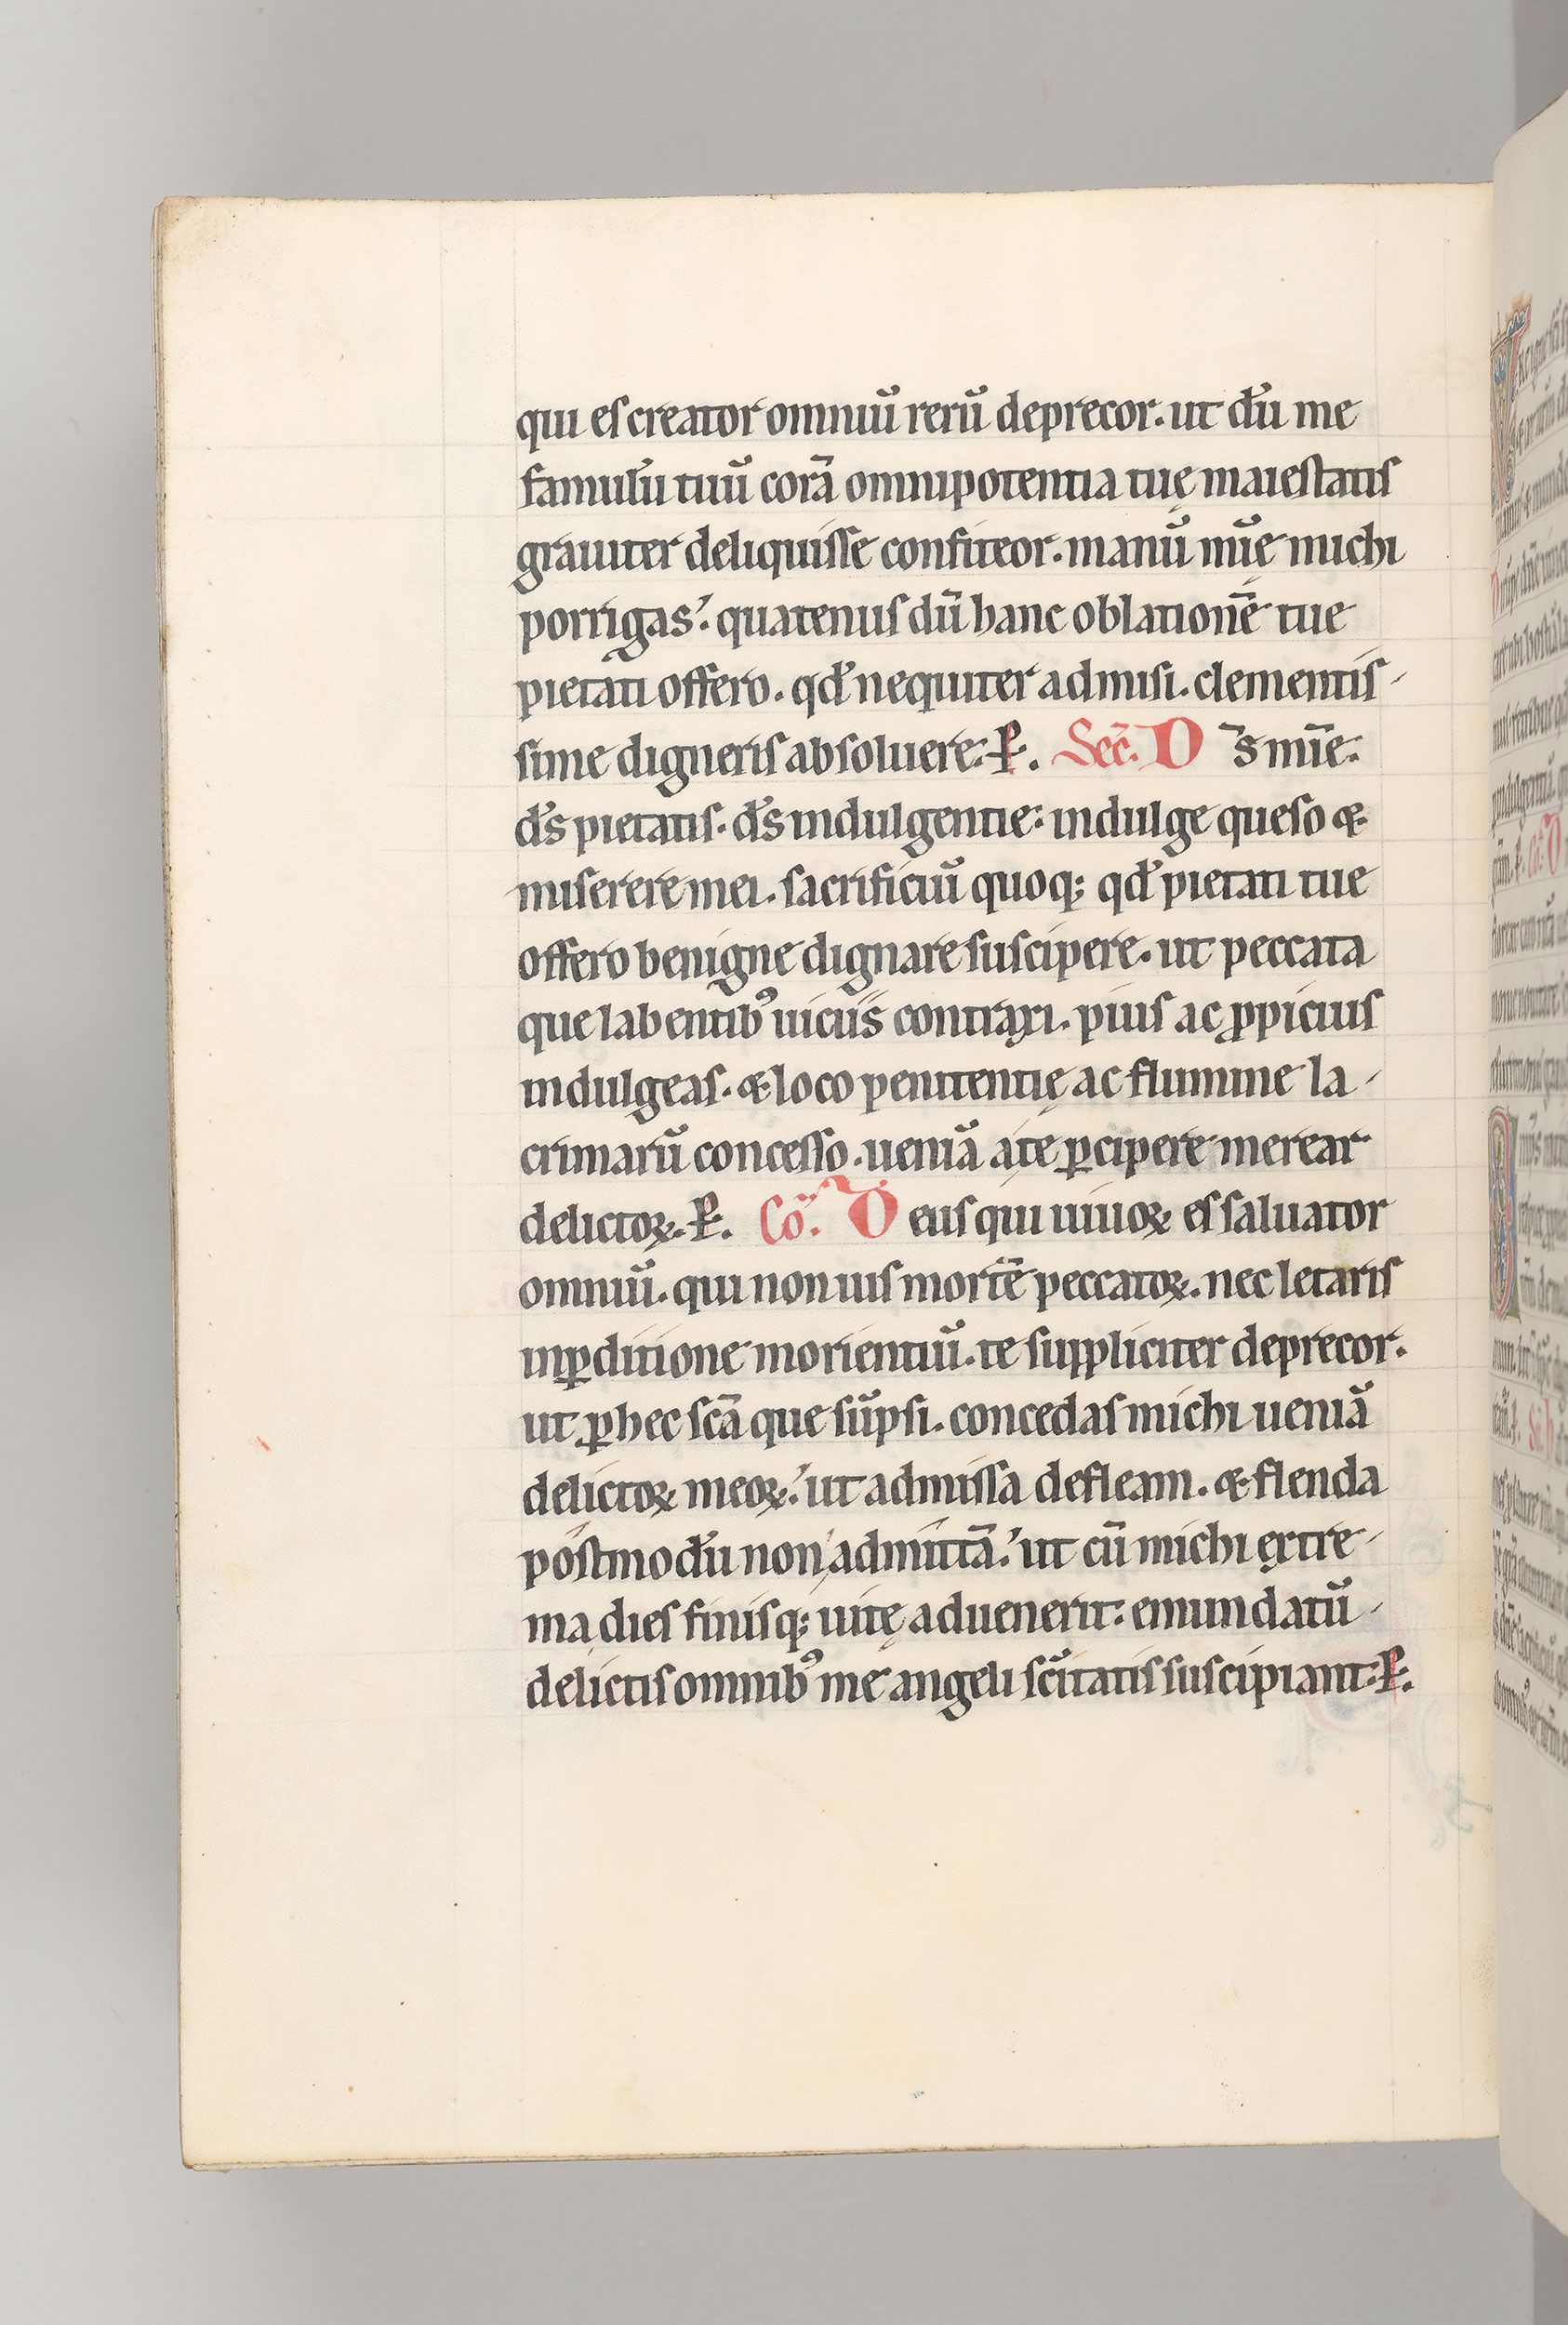 qui es creator omniū rerū deprecor. ut dū me
famulū tuū corā omnipotentia tuę maiestatis
grauiter deliquisse confiteor. manū mīę michi
porrigas. quatenus dū hanc oblationē tue
pietati offero. qd̄ nequiter admisi. clementis-
sime digneris absoluere. P. Sec̄. D s̄ mīe.
ds̄ pietatis. ds̄ indulgentie: indulge queso &
miserere mei. sacrificiū quoq; qd̄ pietati tue
offero benigne dignare suscipere. ut peccata
que labentibꝰ uiciis contraxi. pius ac ꝓpicius
indulgeas. & loco penitentię ac flumine la-
crimarū concesso. ueniā a te ꝑcipere merear
delictoꝝ. P. Cō. D eus qui uiuoꝝ es saluator
omniū. qui non uis mortē peccatoꝝ. nec letaris
in ꝑditione morientiū. te suppliciter deprecor.
ut ꝑ hec scā que sūpsi. concedas michi ueniā
delictoꝝ meoꝝ. ut admissa defleam. & flenda
postmodū non admittā. ut cū michi extre-
ma dies finisq; uitę aduenerit: emundatū
delictis omnibꝰ me angeli scītatis suscipiant. P.